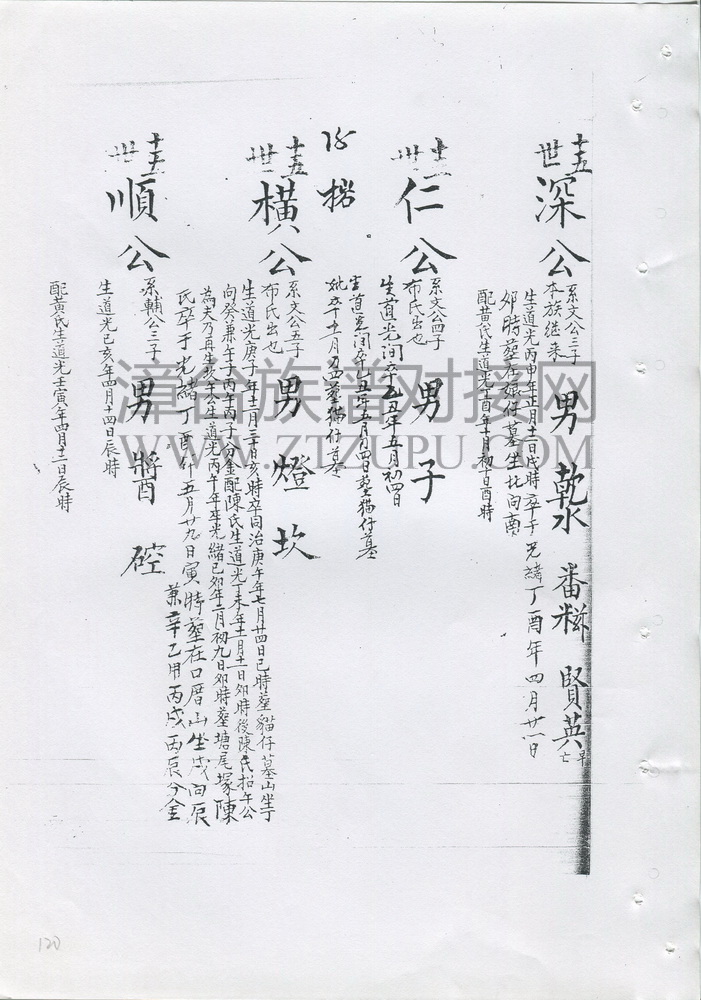 十五世 深公
系文公三子
本族継来
男 乾 水 番 賢英
早亡
生道光丙申年正月十二日戌時卒于光緒丁酉年四月廿一日
卯時塟在猫仔墓坐北向南
配黄氏生道光
年十月初十日酉時
世 仁公
系文公四子
布氏出也
男 子
生道光
五月初四日
五月初四日塟猫仔墓
塟猫仔墓
十五世 横公
系文公五子
布氏出也
男 燈 坎
生道光庚子年十二月二十日亥時卒同治庚午年七月廿四日巳時塟貓仔墓山坐丁
向癸兼午子丙午丙子分金配陳氏生道光丁未年十二月十二日卯時後陳氏招午公
為夫乃再生
午公生道光丙午年卒光緒己卯年二月初九日卯時塟塘尾塚陳
氏卒于光緒丁酉
五月廿九日寅時塟在口厝山坐戌向辰
兼辛乙用丙戌丙辰分金
十五世 順公
系輔公三子
男 醬 硿
生道光己亥年四月十四日辰時
配黄氏生道光壬寅年四月十二日辰時
漳台族谱对接网
WWW.ZTZUPU.COM
120